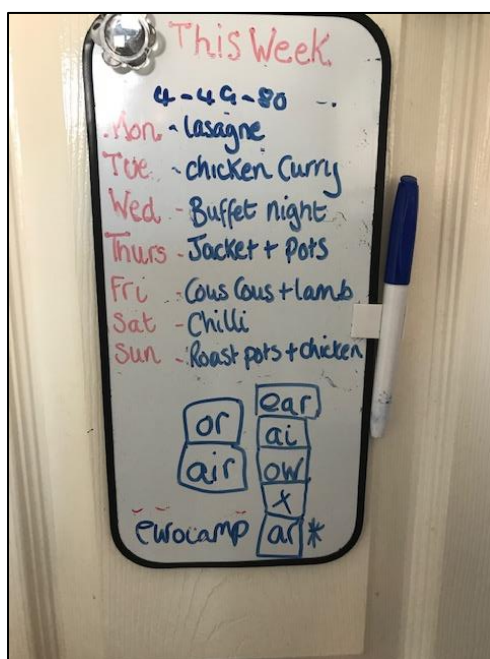 This Week
4-49-80 -.
Mon - lasagne
Tue - chicken Curry
Wed - Buffet night
Thurs - Jacket + Pots
Fri - Cous Cous + lamb
Sat - Chilli
Sun - Roast pots + chicken
or
air
ear
ai
ow
x
ar *
eurocamp